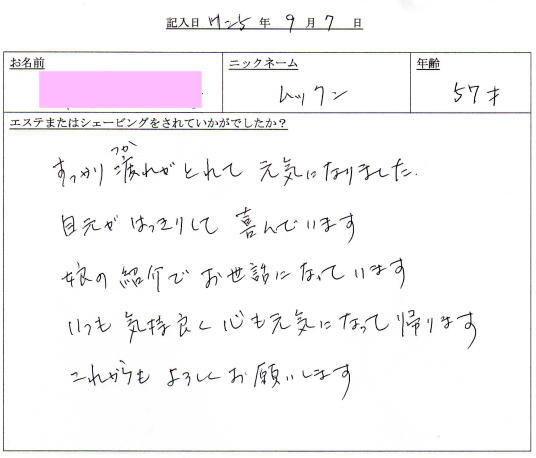 記入日 H25 年 9 月 7 日
お名前 ニックネーム 年齢
ムックン 57才
エステまたはシェービングをされていかがでしたか？
つか
すっかり 疲れがとれて 元気になりました.
目元が はっきりして 喜んでいます
娘の 紹介で お世話になっています
いつも 気持良く 心も元気になって 帰ります
これからも よろしくお願いします